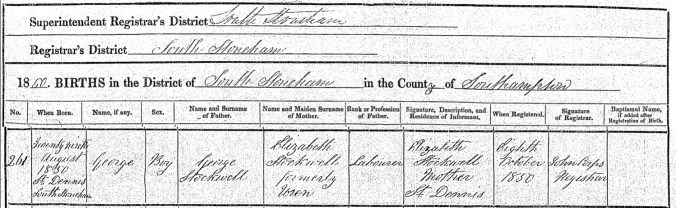 Superintendent Registrar's District South Stoneham
Registrar's District South Stoneham
1850. BIRTHS in the District of South Stoneham in the County of Southampton
No. When Born. Name, if any. Sex. Name and Surname of Father. Name and Maiden Surname of Mother. Rank or Profession of Father. Signature, Description, and Residence of Informant. When Registered. Signature of Registrar. Baptismal Name, if added after Registration of Birth.
261 Twenty ninth August 1850 St Dennis South Stoneham George Boy George Stockwell Elizabeth Stockwell formerly Labourer Elizabeth Stockwell Mother St Dennis Eighth October 1850 John Registrar